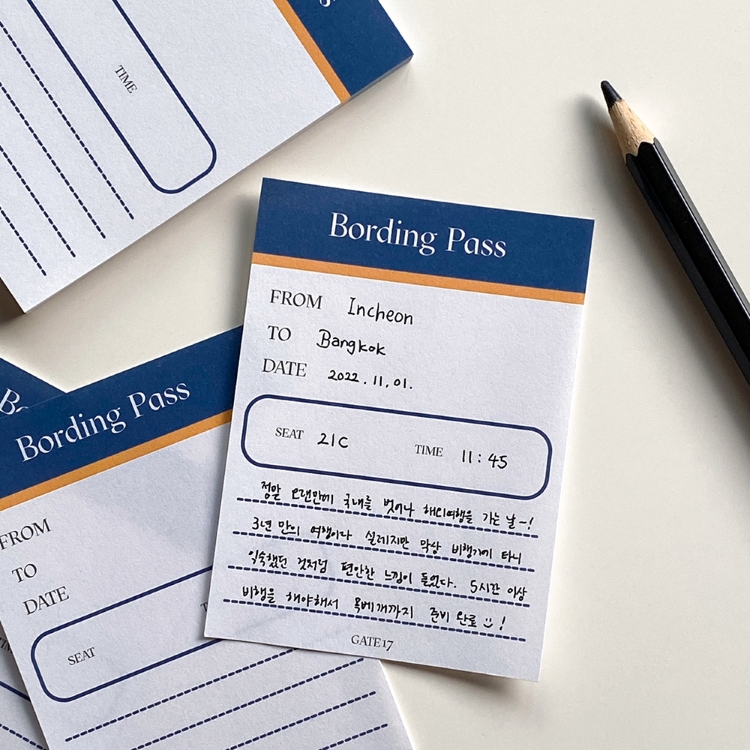 TIME
Bording Pass
FROM Incheon
TO Bangkok
DATE 2022.11.01.
SEAT 21C TIME 11:45
정말 오랜만에 국내를 벗어나 해외여행을 가는 날~!
3년 만의 여행이나 설레지만 막상 비행기에 타니
익숙했던 것처럼 편안한 느낌이 들었다. 5시간 이상
비행을 해야해서 목베개까지 준비 완료 :)!
GATE17
Bording Pass
FROM
TO
DATE
SEAT